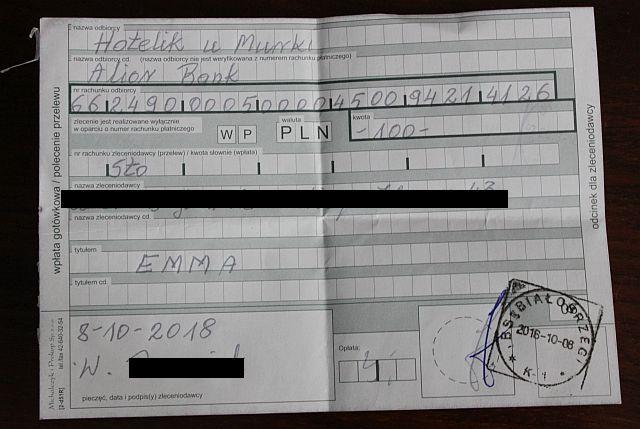 nazwa odbiorcy
Hotelik u Murki
nazwa odbiorcy cd. (nazwa odbiorcy nie jest weryfikowana z numerem rachunku płatniczego)
Alior Bank
nr rachunku odbiorcy
66 2490 0005 0000 4500 9421 4126
zlecenie jest realizowane wyłącznie
w oparciu o numer rachunku płatniczego
W P
waluta
PLN
kwota
-100-
nr rachunku zleceniodawcy (przelew) / kwota słownie (wpłata)
Sto
nazwa zleceniodawcy
nazwa zleceniodawcy cd.
tytułem
EMMA
tytułem cd.
8-10-2018
W.
pieczęć, data i podpis(y) zleceniodawcy
Opłata:
BS BIAŁOBRZEGI
2018-10-08
K-1
wpłata gotówkowa / polecenie przelewu
odcinek dla zleceniodawcy
Michalczyk i Prokop Sp. z o.o.
tel./fax 42-640-32-54